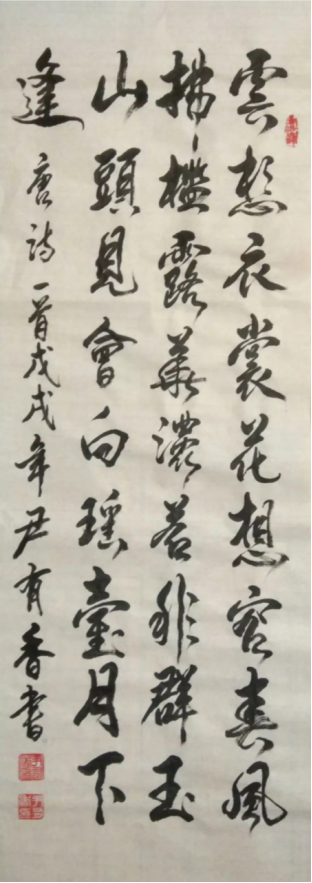 雲想衣裳花想容春風
拂檻露華濃若非群玉
山頭見會向瑶臺月下
逢
唐詩一首戊戌年尹有香書